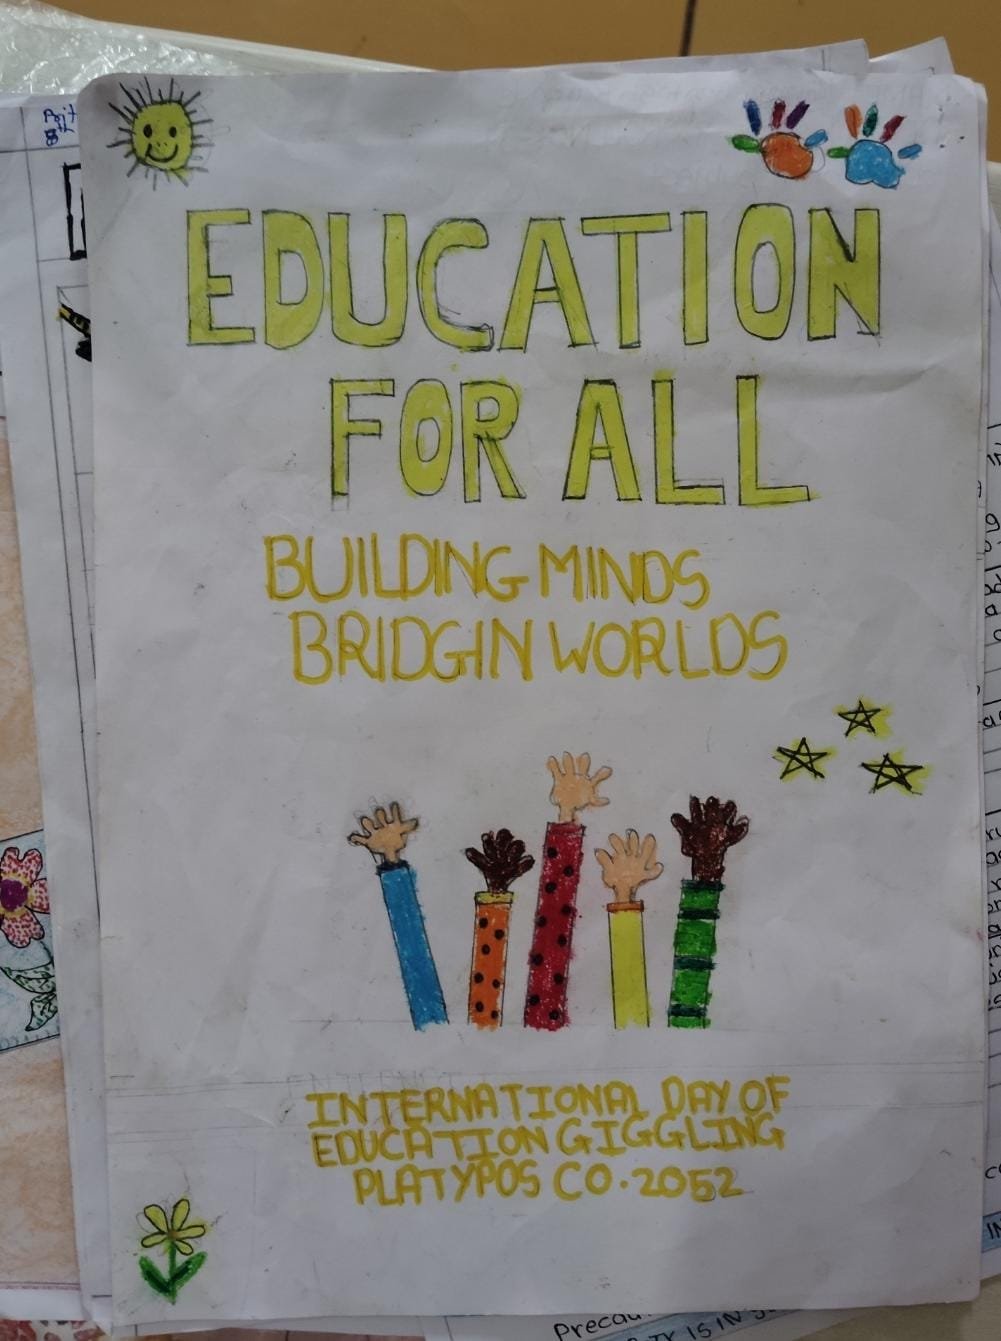 EDUCATION
FOR ALL
BUILDING MINDS
BRIDGIN WORLDS
INTERNATIONAL DAY OF
EDUCATION GIGGLING
PLATYPOS CO. 2052
Precau